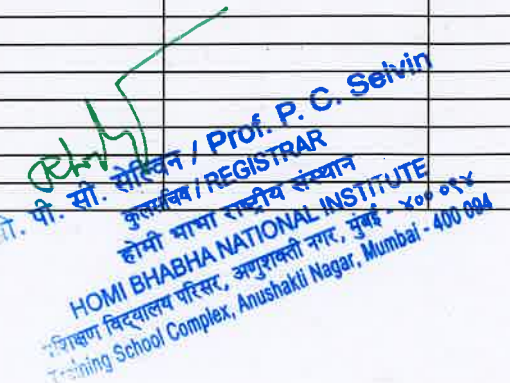 पी. सी. सेल्विन / Prof. P. C. Selvin
कुलसचिव / REGISTRAR
होमी भाभा राष्ट्रीय संस्थान
HOMI BHABHA NATIONAL INSTITUTE
विद्यालय परिसर, अणुशक्ती नगर, मुंबई - ४०० ०९४
School Complex, Anushakti Nagar, Mumbai - 400 094